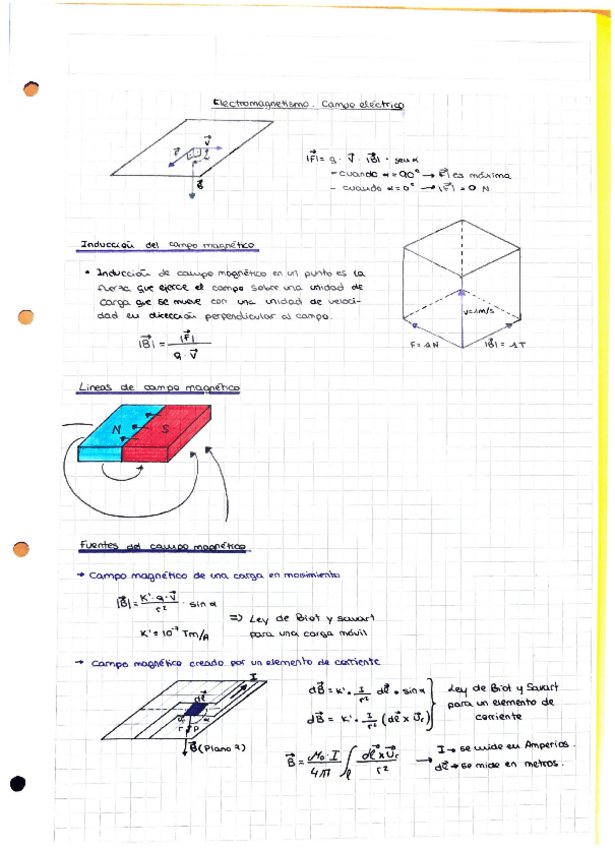 Electromagnetismo. Campo eléctrico
F⃗ V⃗ α
B⃗
|F⃗| = q · V⃗ · |B⃗| · sen α
- cuando α = 90° → |F⃗| es máxima
- cuando α = 0° → |F⃗| = 0 N
Inducción del campo magnético
• Inducción de campo magnético en un punto es la
fuerza que ejerce el campo sobre una unidad de
carga que se mueve con una unidad de veloci-
dad en dirección perpendicular al campo.
|B⃗| = |F⃗| / q · V⃗
v=1m/s
F = 1N |B⃗| = 1T
Líneas de campo magnético
N S
Fuentes del campo magnético
→ Campo magnético de una carga en movimiento
|B⃗| = K' · q · V⃗ / r² · sin α
K' = 10⁻⁷ Tm/A
=> Ley de Biot y Savart
para una carga móvil
→ Campo magnético creado por un elemento de corriente
I
dl⃗
α
r P
B⃗ (Plano
dB⃗ = K' · I / r² dl⃗ · sin α
dB⃗ = K' · I / r² (dl⃗ x U⃗r)
Ley de Biot y Savart
para un elemento de
corriente
B⃗ = μ₀ · I / 4π ∫ℓ dl⃗ x U⃗r / r²
→ I → se mide en Amperios.
dl⃗ → se mide en metros.